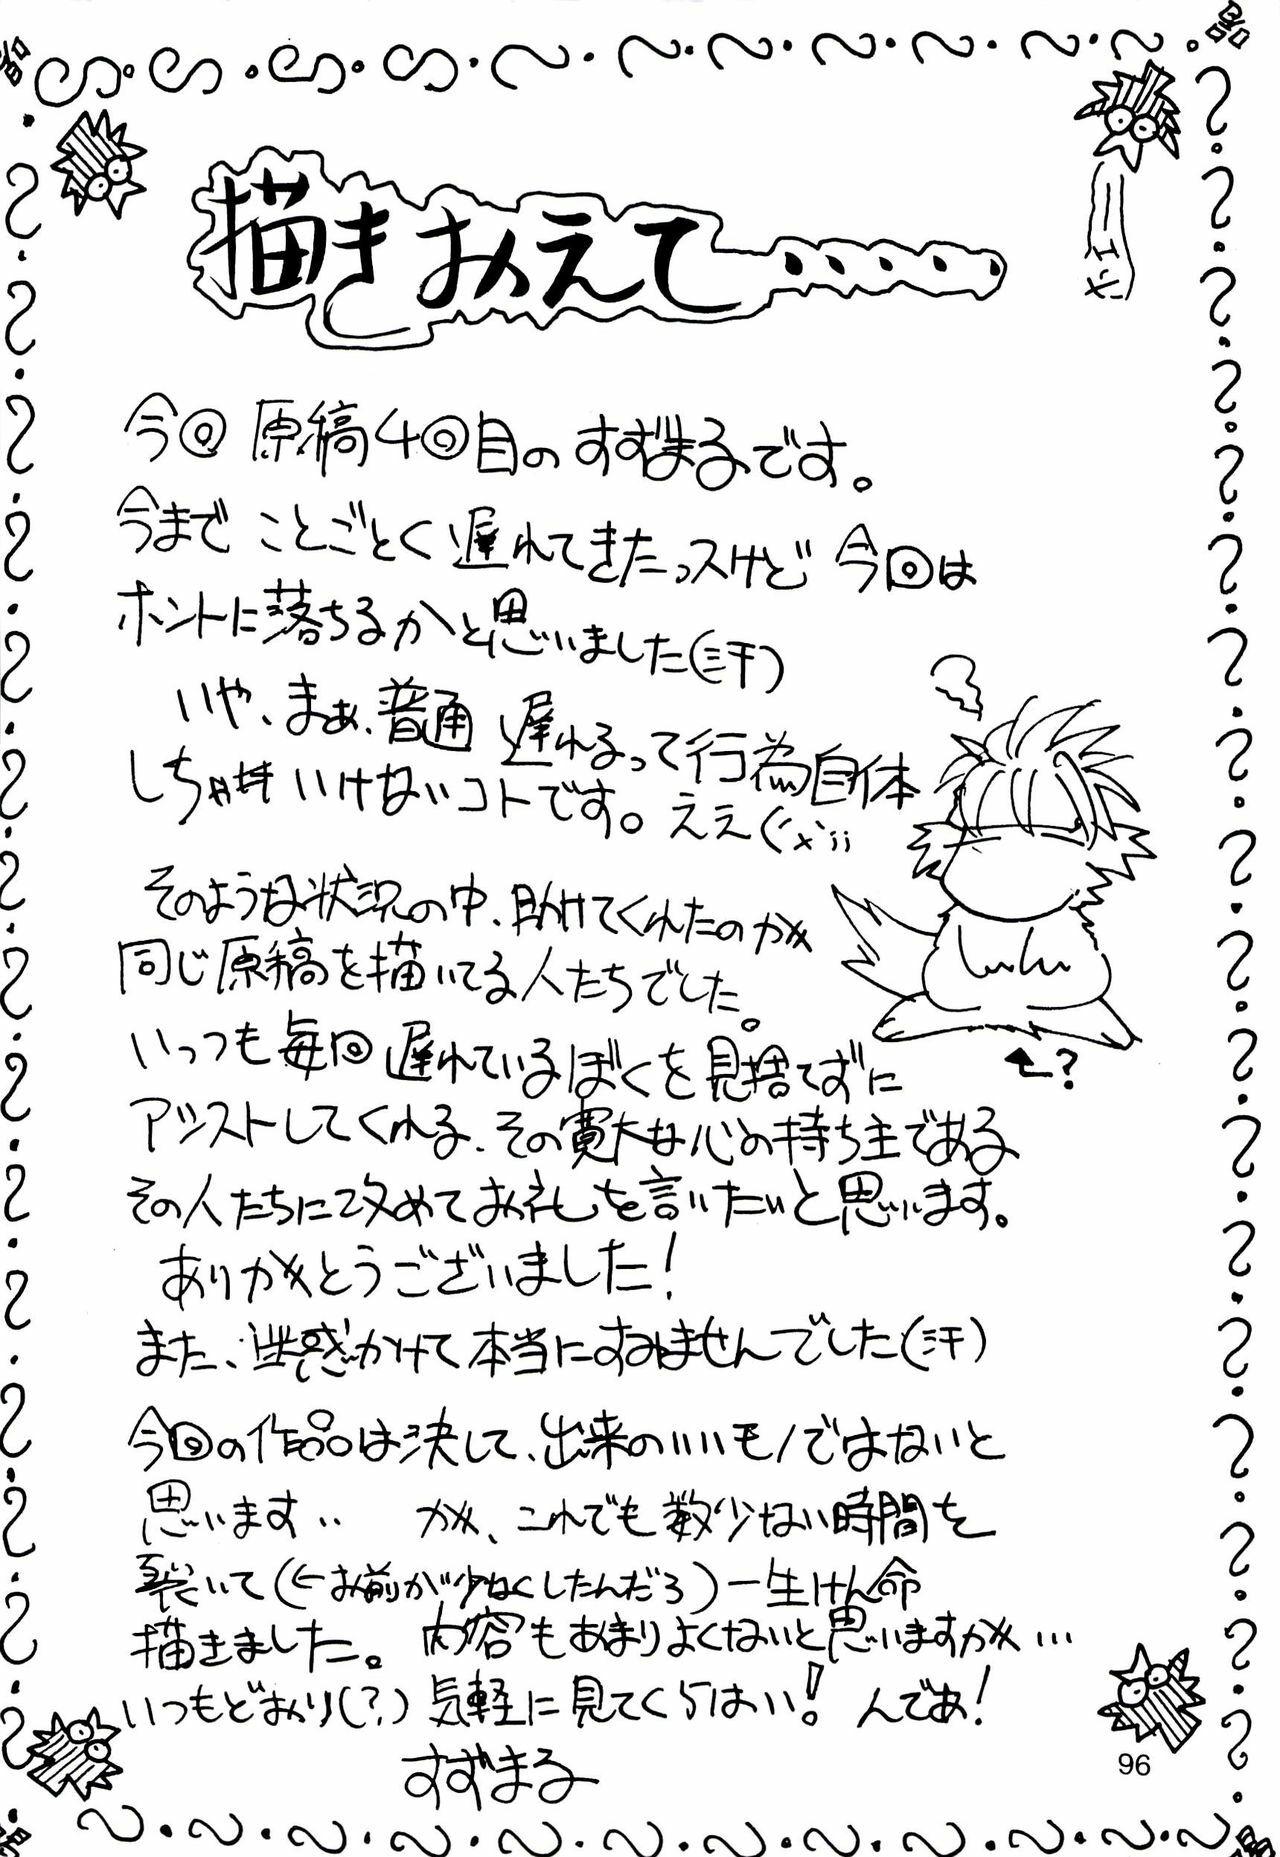 描きおえて・・・・・
今回原稿4回目のすずまるです。
今までことごとく遅れてきたっスけど今回は
ホントに落ちるかと思いました(汗)
いや、まぁ、普通遅れるって行為自体
しちゃいけないコトです。ええ(´x`;;
そのような状況の中、助けてくれたのが
同じ原稿を描いてる人たちでした。
いっつも毎回遅れているぼくを見捨てずに
アシストしてくれる、その寛大な心の持ち主である
その人たちに改めてお礼を言いたいと思います。
ありがとうございました!
また、迷惑かけて本当にすみませんでした(汗)
今回の作品は決して、出来のいいモノではないと
思います‥ が、これでも数少ない時間を
裂いて(←お前が少なくしたんだろ)一生けん命
描きました。内容もあまりよくないと思いますが…
いつもどおり(?)気軽に見てくらはい! んであ!
すずまる
←?
96